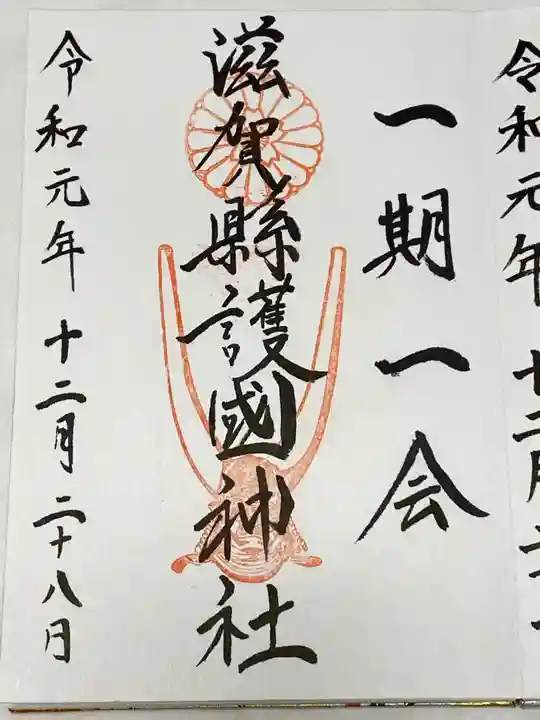 令和元年 十二月二
一期一会
滋賀縣護國神社
令和元年 十二月二十八日